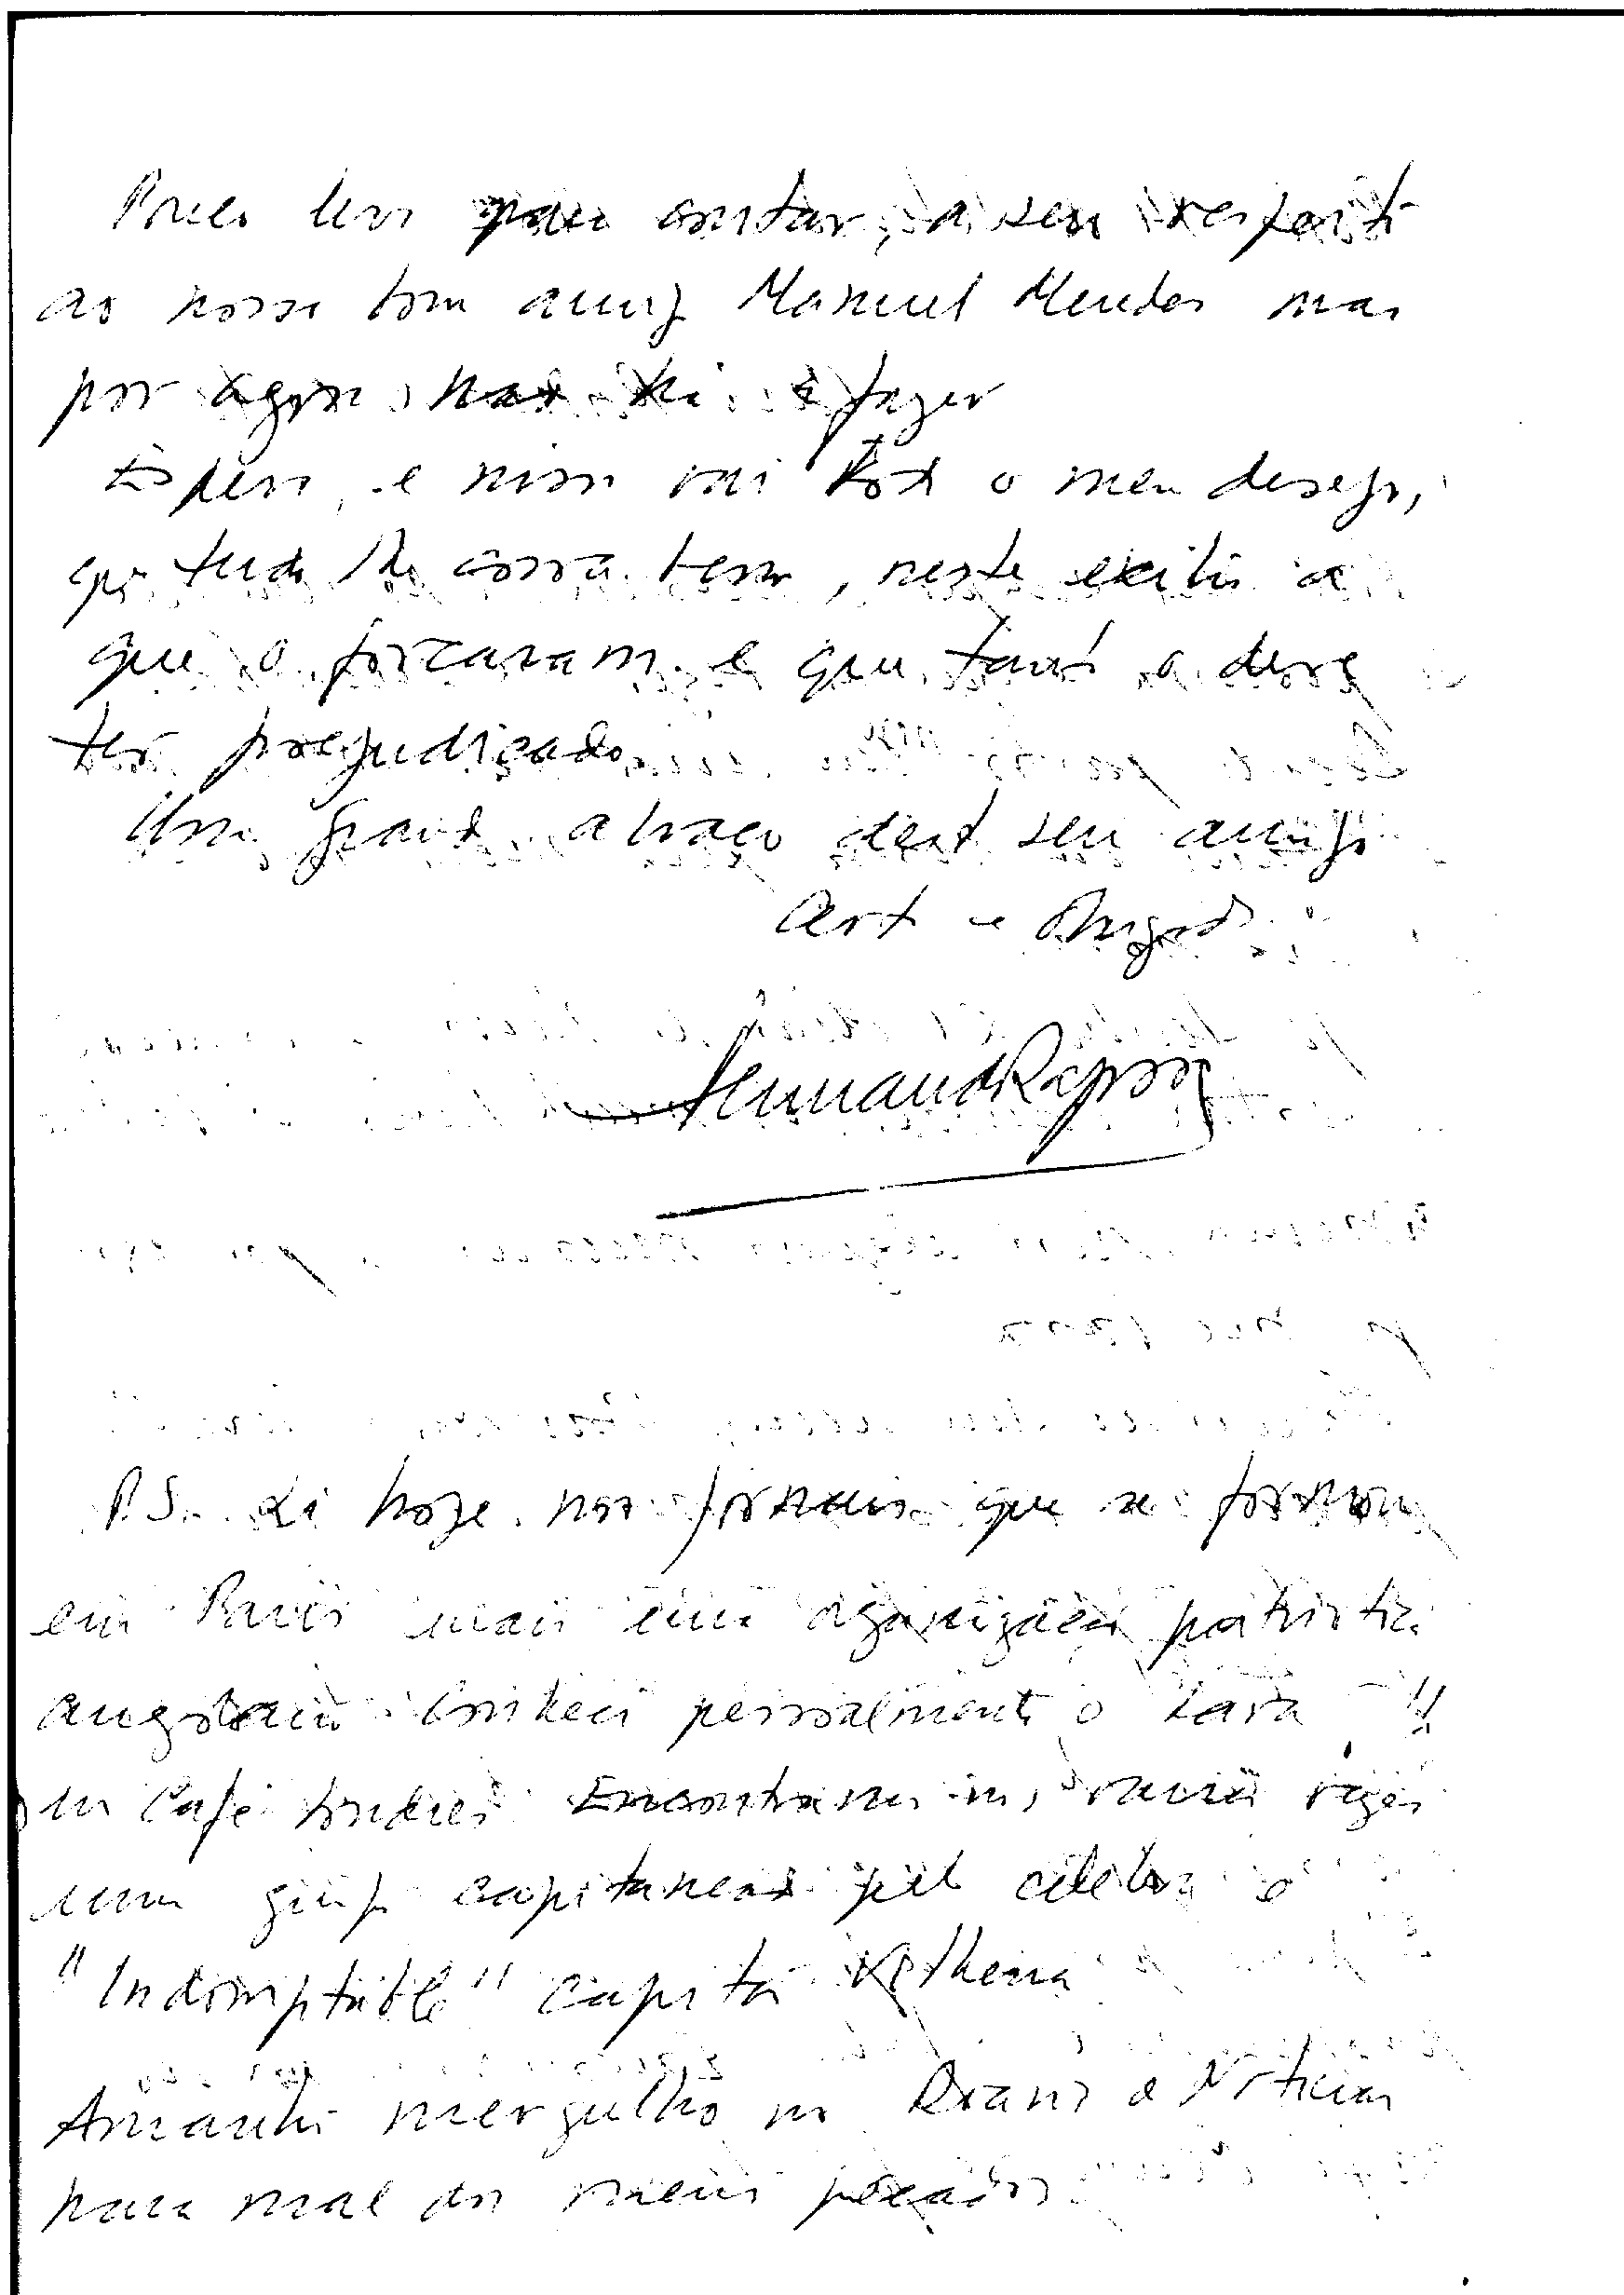 contar, a seu respeito
ao nosso bom amigo Manuel Mendes mas
por agora nada há a fazer
Espero, e nisso vai todo o meu desejo,
que tudo lhe corra bem, neste exilio a
que o forçaram e que tanto o deve
ter prejudicado
Um grande abraço deste seu amigo
certo e obrigado
P.S. Li hoje nos jornais que se formou
em Paris mais uma organização patriotica
angolana Conheci pessoalmente o Lara !!
no Café Encontramo-nos varias vezes
num grupo capitaneado pelo celebre e
"Indomptable" capitão
Amanhã mergulho no Diario de Noticias
para mal dos meus pecados